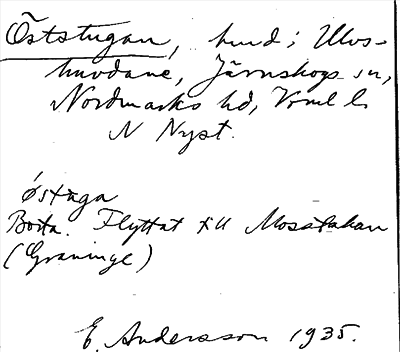 Öststugan, hmd i Ulvs-
huvdane, Järnskogs sn,
Nordmarks hd, Vrml l.
N Nyst.
östuga
Borta. Flyttat till Mosstakan
(Graninge)
E. Andersson 1935.